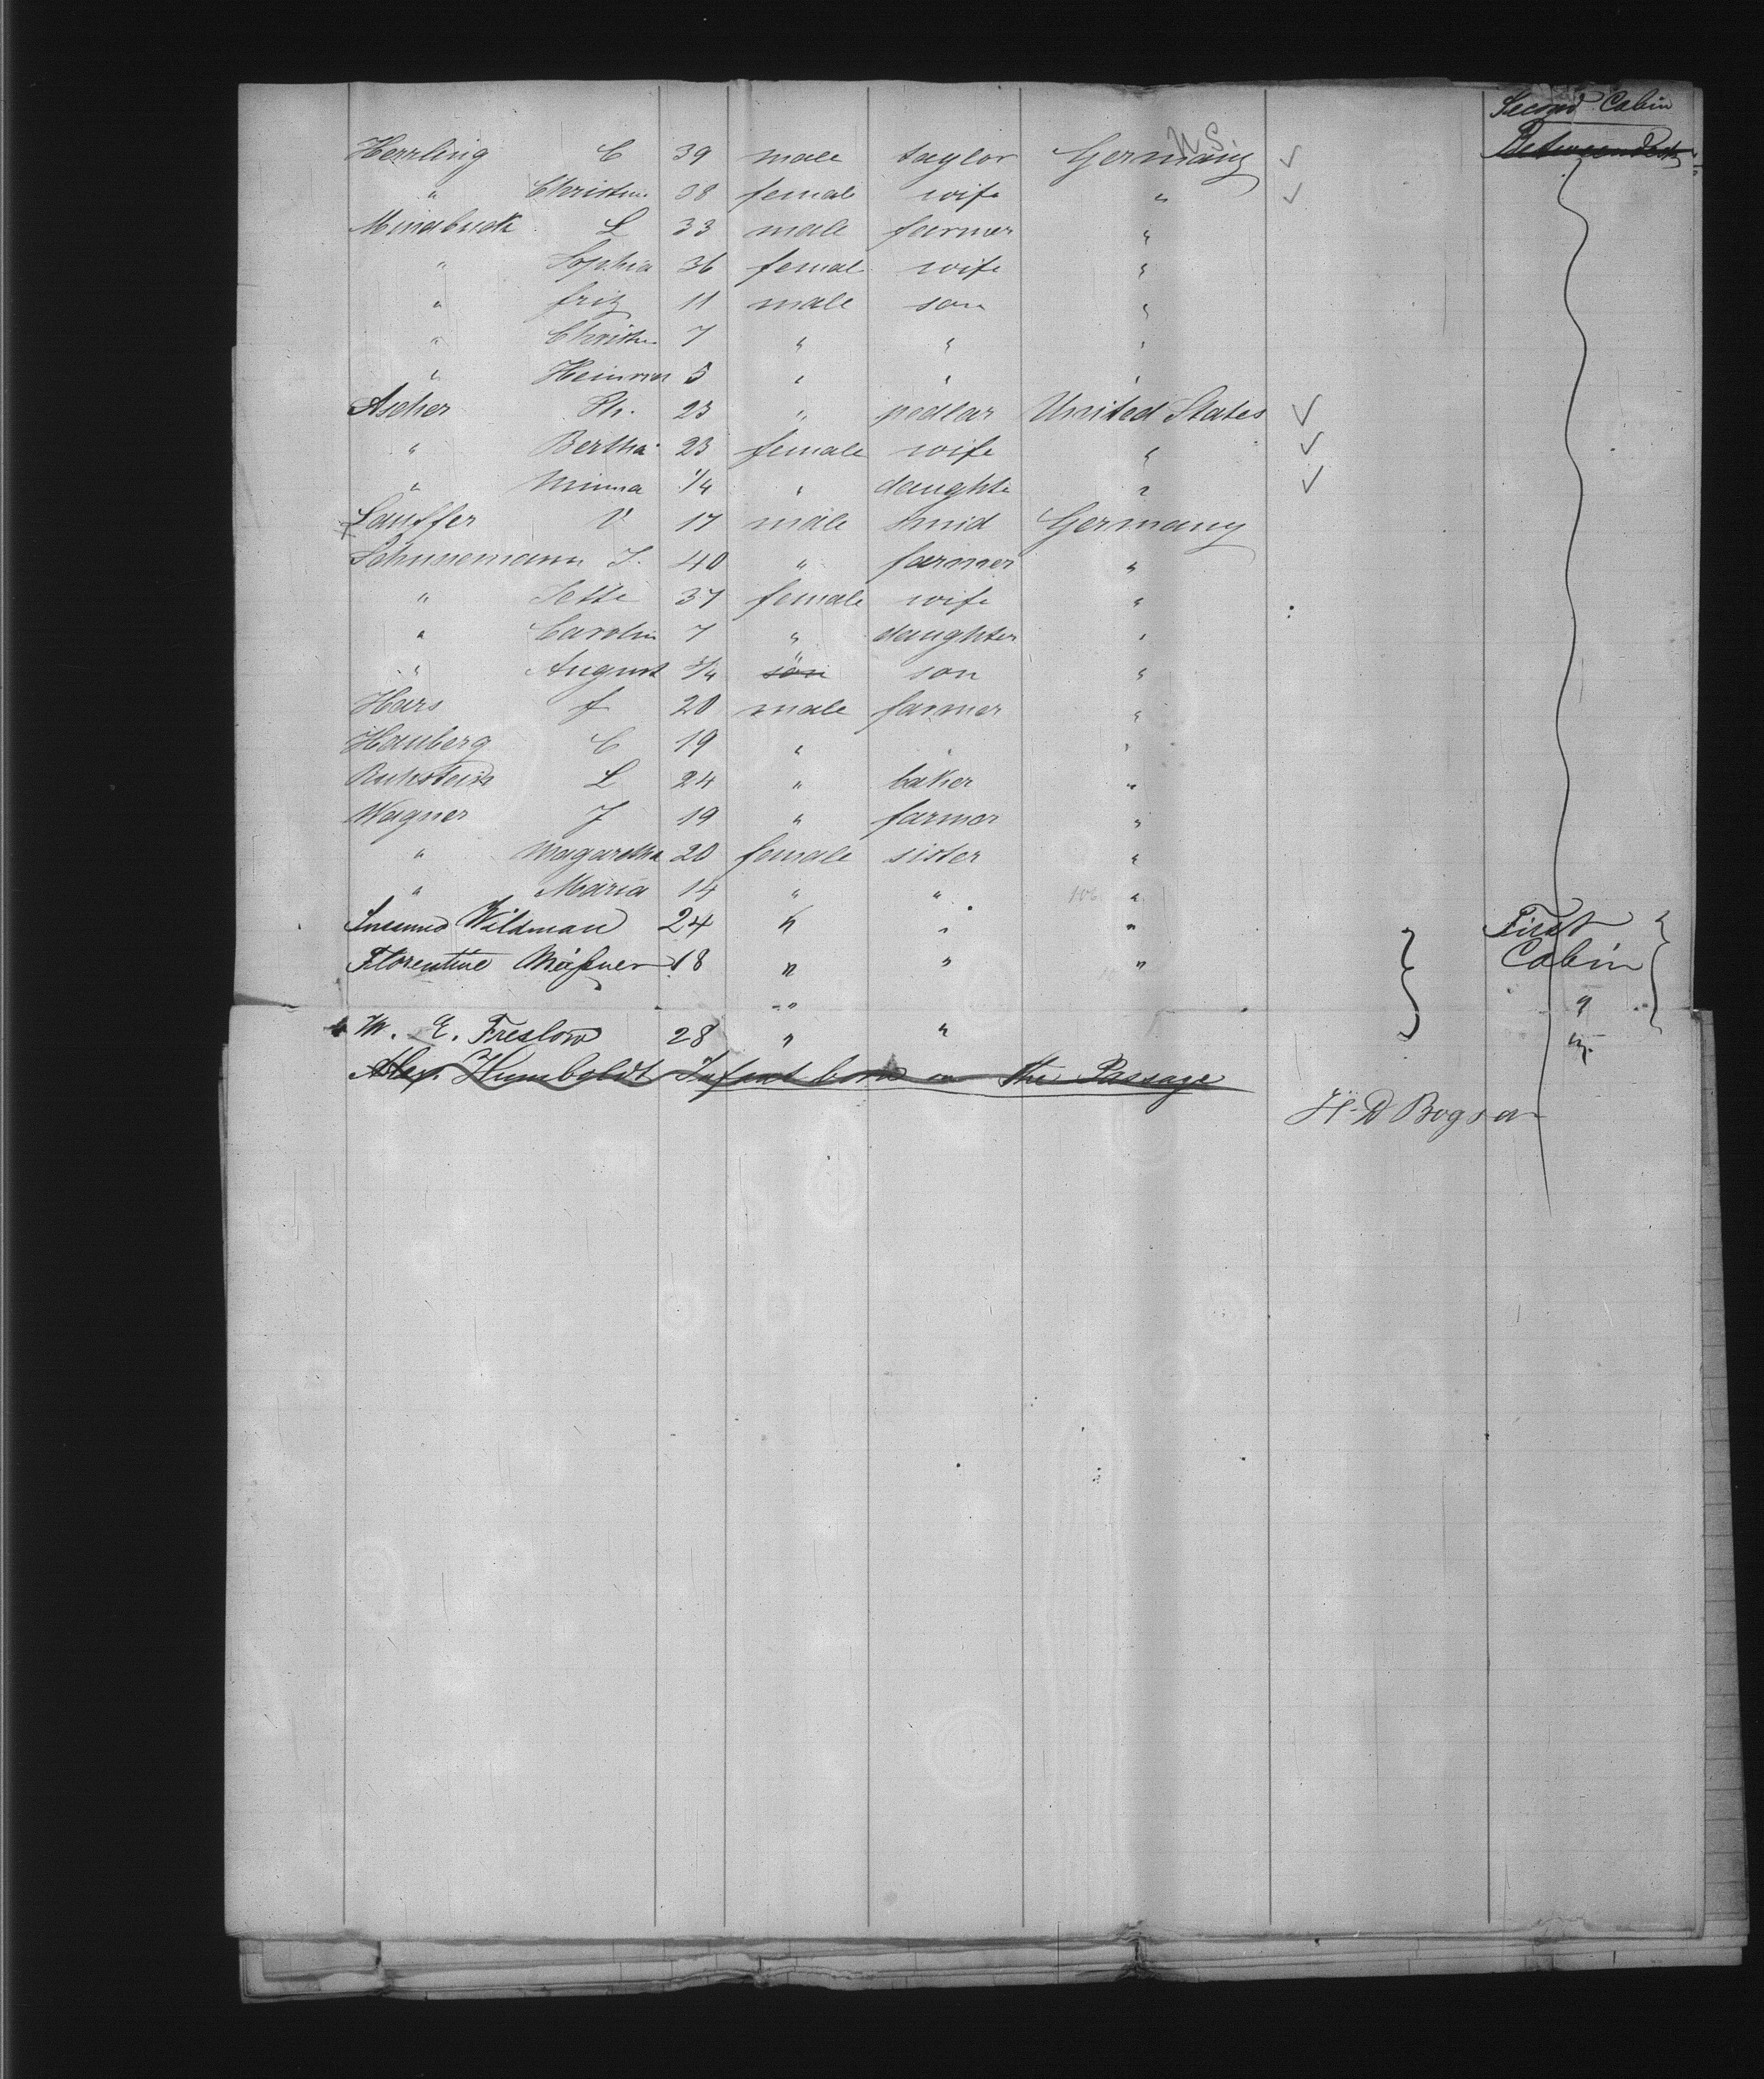 Second Cabin
Herrling C 39 male taylor Germany U.S. ✓ Betweendeck
" Christine 38 female wife " ✓
L 33 male farmer "
" Sophia 36 female wife "
" fritz 11 male son "
" 7 " " "
" 5 " " "
Ascher Ph. 23 " pedlar United States ✓
" Bertha 23 female wife " ✓
" Minna 1/4 " daughte " ✓
Lauffer V 17 male smid Germany
Schunemann J. 40 " farmer "
" Jette 37 female wife "
" Carolin 7 " daughter "
" August 3/4 son son "
Hars f 20 male farmer "
Hauberg C 19 " " "
Ruhstein L 24 " baker "
Wagner J 19 " farmer "
" Magaretha 20 female sister "
" Maria 14 " " 106 "
Wildman 24 " " " First
Florentine 18 " " " Cabin
" "
E. Freslow 28 " " "
Alex. Humboldt Infant born on the Passage
H. D